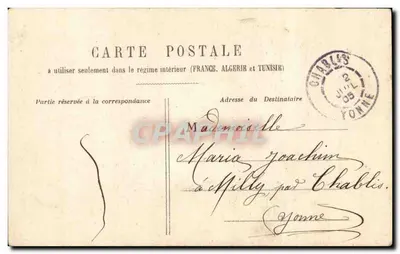 CARTE POSTALE
à utiliser seulement dans le régime intérieur (FRANCE, ALGERIE et TUNISIE)
Partie réservée à la correspondance
Adresse du Destinataire
CHABLIS
2
05
YONNE
Mademoiselle
Maria Joachim
à Milly par Chablis
(Yonne)
CARTAPHILIE